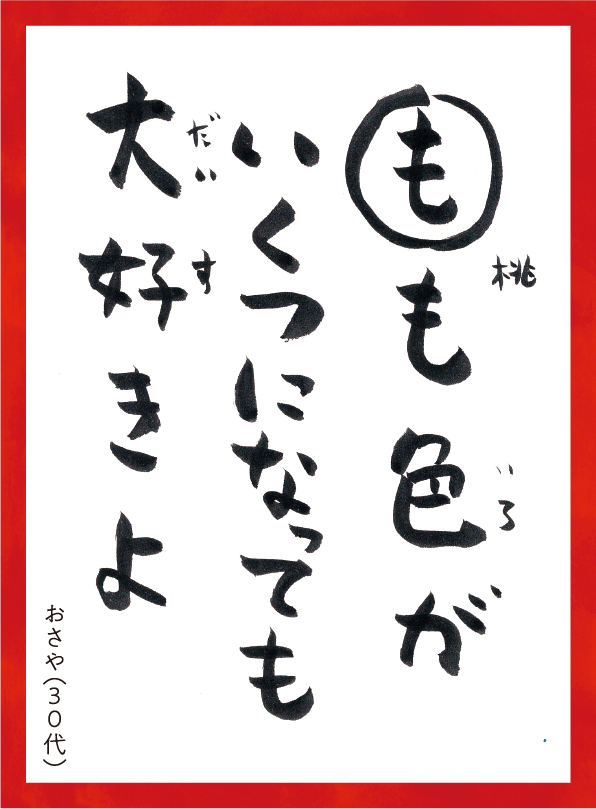 もも色が
桃
いろ
いくつになっても
大好きよ
だい
す
おさや(30代)